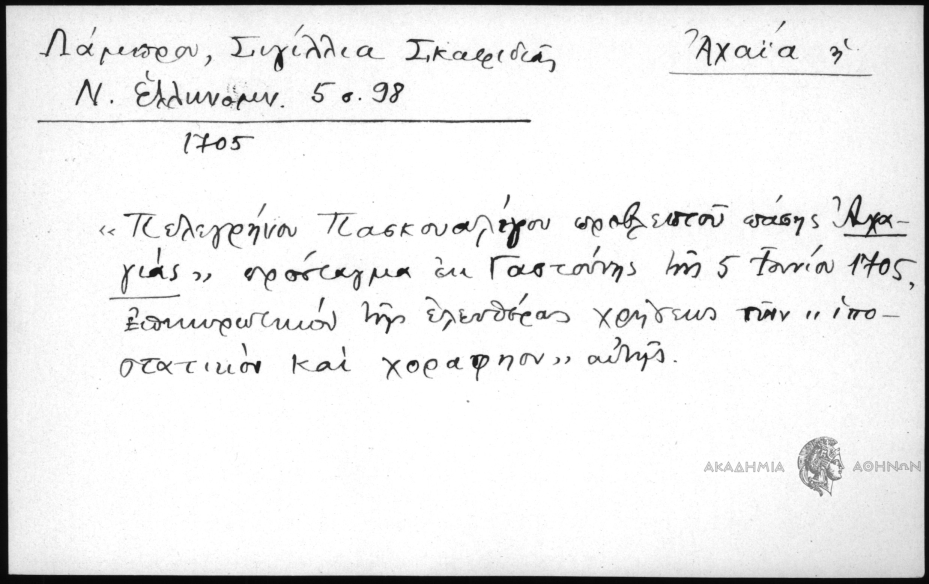 Λάμπρου, Σιγίλλια Σκαφιδιᾶς
Ἀχαΐα ἡ
Ν. Ἑλληνομν. 5 σ. 98
1705
«Πελεγρήνου Πασκουαλήγου προβλεπτοῦ πάσης Ἀχα-
γιάς» πρόσταγμα ἐκ Γαστούνης τῆς 5 Ἰουνίου 1705,
ἐπικυρωτικόν τῆς ἐλευθέρας χρήσεως τῶν «ὑπο-
στατικὸν καὶ χοραφηον» αὐτῆς.
ΑΚΑΔΗΜΙΑ ΑΘΗΝΩΝ